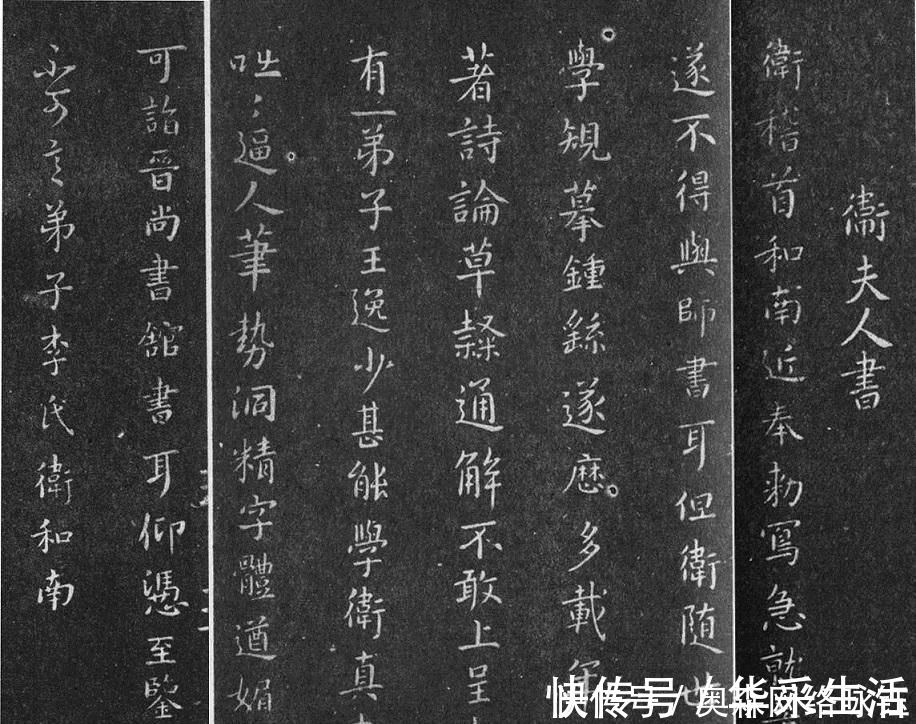 衞夫人書
衛稽首和南近奉勑寫急就
遂不得與師書耳但衛随世
學規摹鍾繇遂歷多載年
著詩論草隸通解不敢上呈
有一弟子王逸少甚能學衛真
咄〻逼人筆勢洞精字體遒媚
可詣晉尚書舘書耳仰憑至鑒
不可言弟子李氏衛和南
快传号/华采生活